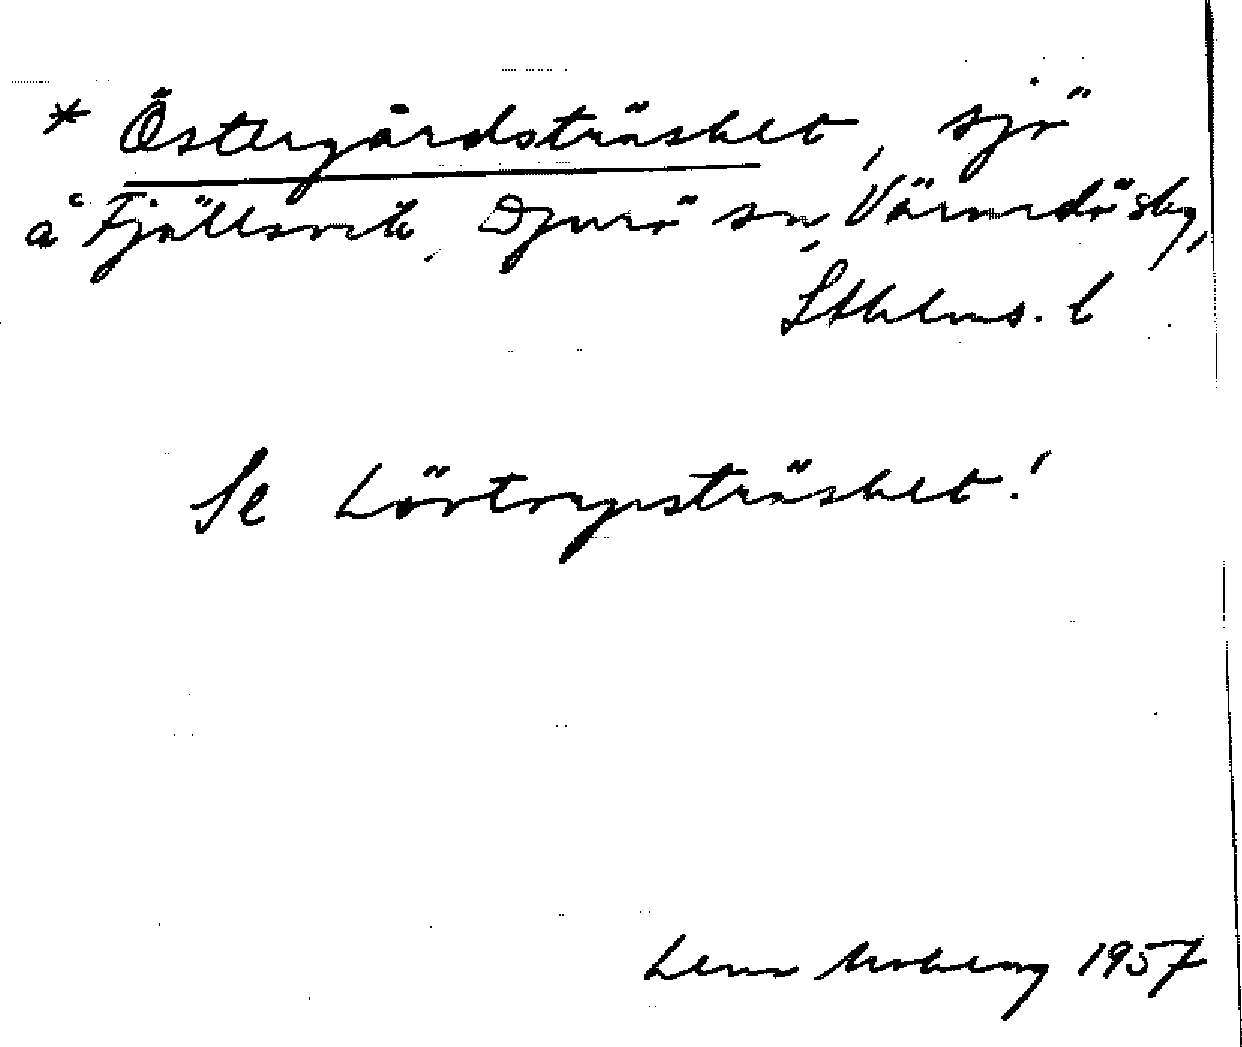 * Östergårdsträsket, sjö
å Fjällsvik, Djurö sn, Värmdö skg,
Sthlms. l
Se Lövtorpsträsket!
Lena Moberg 1957